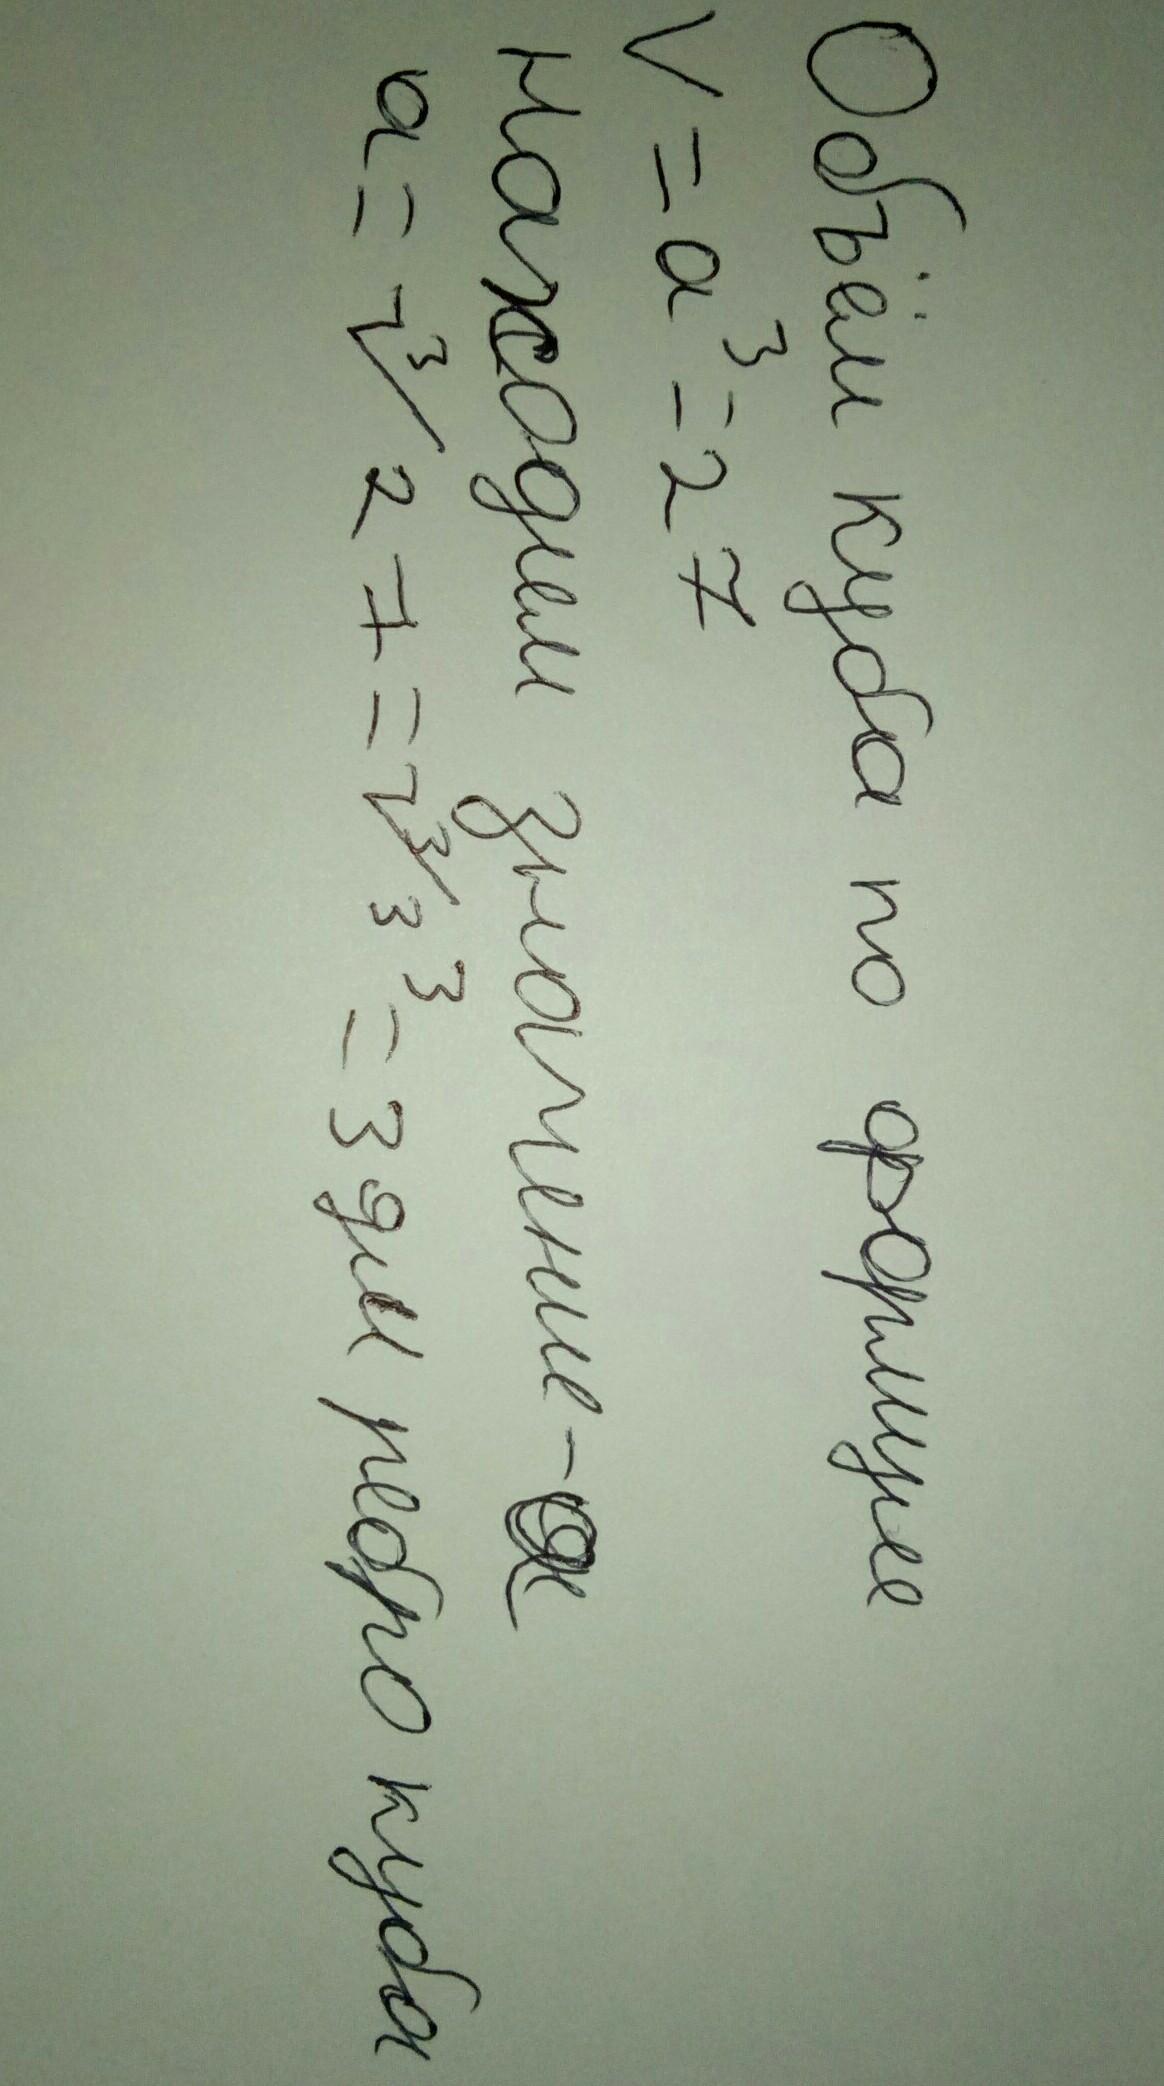 Объём куба по формуле
V = a³ = 27
находим значение - a
a = ∛27 = ∛3³ = 3 дм ребро куба